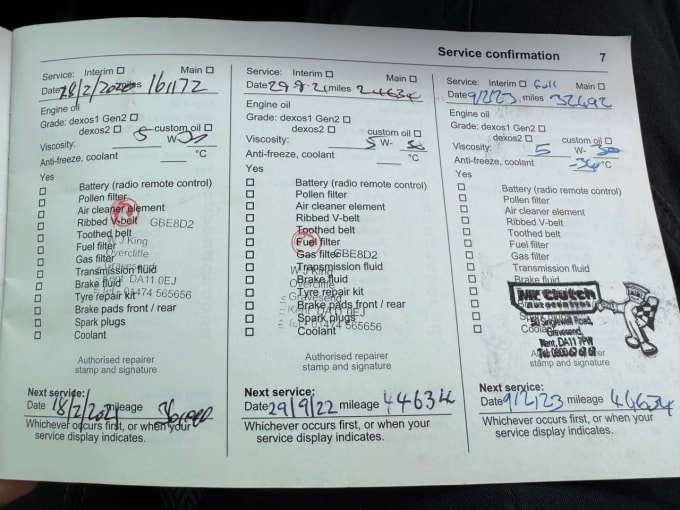 Service confirmation 7
Service: Interim Main
Date miles 16172
Engine oil
Grade: dexos1 Gen2
dexos2 custom oil
Viscosity: 5 W-
Anti-freeze, coolant °C
Yes
Battery (radio remote control)
Pollen filter
Air cleaner element
Ribbed V-belt GBE8D2
Toothed belt
Fuel filter
Gas filter
Transmission fluid
Brake fluid
Tyre repair kit
Brake pads front / rear
Spark plugs
Coolant
W J King
Overcliffe
Gravesend
Kent DA11 0EJ
Tel: 01474 565656
Authorised repairer
stamp and signature
Next service:
Date 18/2/2021 mileage
Whichever occurs first, or when your
service display indicates.
Service: Interim Main
Date 29 9 21 miles 24634
Engine oil
Grade: dexos1 Gen2
dexos2 custom oil
Viscosity: 5 W- 30
Anti-freeze, coolant °C
Yes
Battery (radio remote control)
Pollen filter
Air cleaner element
Ribbed V-belt
Toothed belt
Fuel filter
Gas filter GBE8D2
Transmission fluid
Brake fluid
Tyre repair kit
Brake pads front / rear
Spark plugs
Coolant
W J King
Overcliffe
Gravesend
Kent DA11 0EJ
Tel: 01474 565656
Authorised repairer
stamp and signature
Next service:
Date 29/9/22 mileage 44634
Whichever occurs first, or when your
service display indicates.
Service: Interim full Main
Date 9/2/23 miles 32692
Engine oil
Grade: dexos1 Gen2
dexos2 custom oil
Viscosity: 5 W- 30
Anti-freeze, coolant °C
Yes
Battery (radio remote control)
Pollen filter
Air cleaner element
Ribbed V-belt
Toothed belt
Fuel filter
Gas filter
Transmission fluid
Brake fluid
Mr Clutch
Autocentres
50 Singlewell Road,
Gravesend,
Kent, DA11 7PW
stamp and signature
Next service:
Date mileage 44634
Whichever occurs first, or when your
service display indicates.